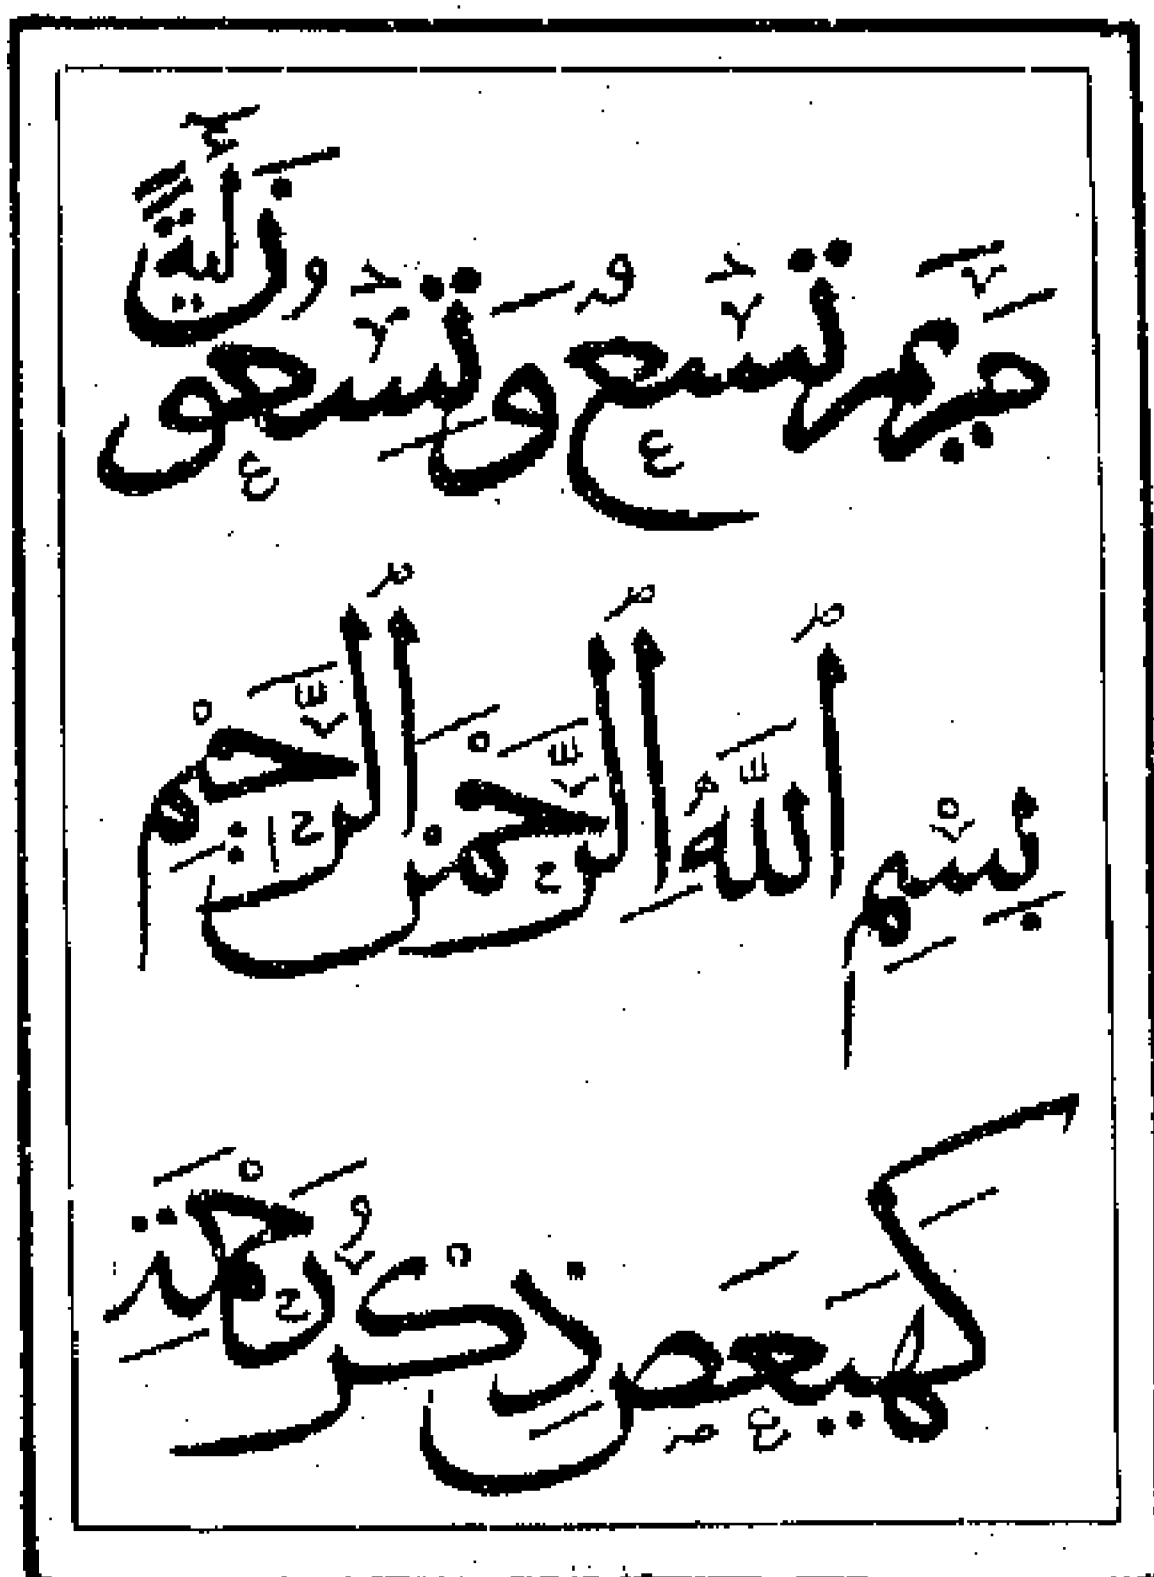 مريم تسع وتسعون آية
بِسْمِ ٱللَّهِ ٱلرَّحْمَٰنِ ٱلرَّحِيمِ
كهيعص ذِكْرُ رَحْمَتِ